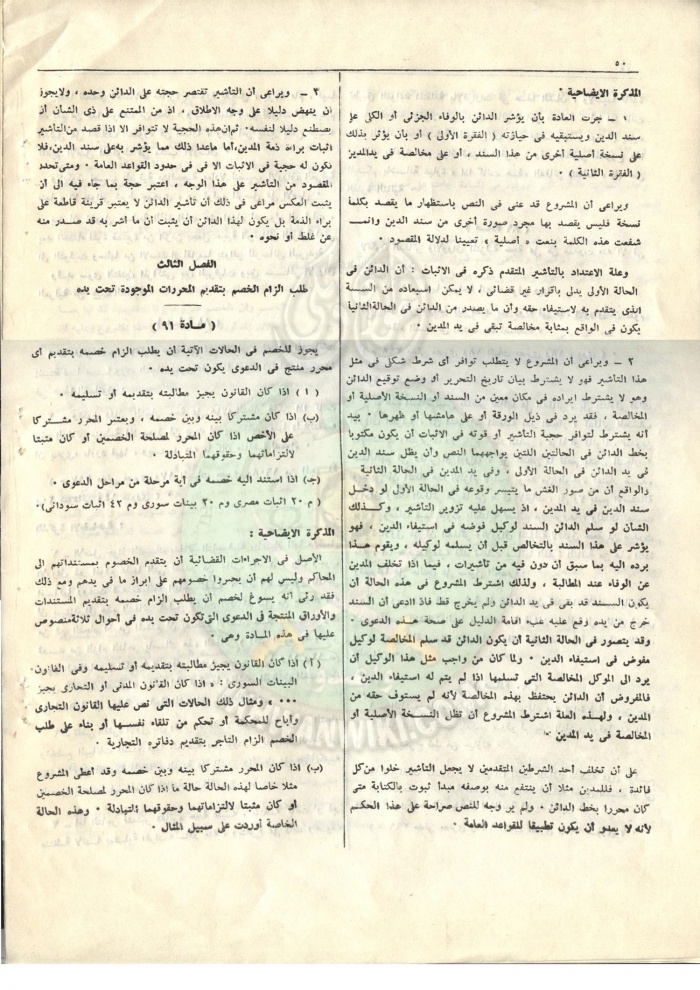 ٥٠
المذكرة الايضاحية ٠
١ ــ جرت العادة بأن يؤشر الدائن بالوفاء الجزئى أو الكلى على
سند الدين ويستبقيه فى حيازته ( الفقرة الأولى ) أو بأن يؤثر بذلك
على نسخة أصلية أخرى من هذا السند ، أو على مخالصة فى يدالمدين
( الفقرة الثانية ) ٠
ويراعى أن المشروع قد عنى فى النص باستظهار ما يقصد بكلمة
نسخة فليس يقصد بها مجرد صورة أخرى من سند الدين وانمــا
شفعت هذه الكلمة بنعت « أصلية » تعيينا لدلالة المقصود ٠
وعلة الاعتداد بالتأشير المتقدم ذكره فى الاثبات : أن الدائن فى
الحالة الأولى يدلى باقرار غير قضائى ، لا يمكن استبعاده من السند
الذى يتقدم به لاستيفاء حقه وأن ما يصدر من الدائن فى الحالة الثانية
يكون فى الواقع بمثابة مخالصة تبقى فى يد المدين ٠
٢ ــ ويراعى أن المشروع لا يتطلب توافر أى شرط شكلى فى مثل
هذا التأشير فهو لا يشترط بيان تاريخ التحرير أو وضع توقيع الدائن
وهو لا يشترط ايراده فى مكان معين من السند أو النسخة الأصلية أو
المخالصة ، فقد يرد فى ذيل الورقة أو على هامشها أو ظهرها ٠ بيد
أنه يشترط لتوافر حجية التأشير أو قوته فى الاثبات أن يكون مكتوبا
بخط الدائن فى الحالتين اللتين يواجههما النص وأن يظل سند الدين
فى يد الدائن فى الحالة الأولى ، وفى يد المدين فى الحالة الثانية
والواقع أن من صور الغش ما يتيسر وقوعه فى الحالة الأولى لو دخل
سند الدين فى يد المدين ، اذ يسهل عليه تزوير التأشير ، وكــذلك
الشأن لو سلم الدائن السند لوكيل فوضه فى استيفاء الدين ، فهو
يؤشر على هذا السند بالتخالص قبل أن يسلمه لوكيله ، ويقوم هــذا
برده اليه بما سبق أن دون فيه من تأشيرات ، فيما اذا تخلف المدين
عن الوفاء عند المطالبة ، ولذلك اشترط المشروع فى هذه الحالة أن
يكون السند قد بقى فى يد الدائن ولم يخرج قط فاذا ادعى أن السند
خرج من يده وقع عليه عبء اقامة الدليل على صحة هــذه الدعوى ٠
وقد يتصور فى الحالة الثانية أن يكون الدائن قد سلم المخالصة لوكيل
مفوض فى استيفاء الدين ٠ ولما كان من واجب مثل هذا الوكيل أن
يرد الى الموكل المخالصة التى تسلمها اذا لم يتم له استيفاء الدين ،
فالمفروض أن الدائن يحتفظ بهذه المخالصة لأنه لم يستوف حقه من
المدين ، ولهــذه العلة اشترط المشروع أن تظل النسخة الأصلية أو
المخالصة فى يد المدين
على أن تخلف أحد الشرطين المتقدمين لا يجعل التأشير خلوا من كل
فائدة ، فللمدين مثلا أن ينتفع منه بوصفه مبدأ ثبوت بالكتابة متى
كان محررا بخط الدائن ٠ ولم ير وجه للنص صراحة على هذا الحكم
لأنه لا يعدو أن يكون تطبيقا للقواعد العامة ٠
٣ ــ ويراعى أن التأشير تقتصر حجته على الدائن وحده ، ولايجوز
أن ينهض دليلا على وجه الاطلاق ، اذ من الممتنع على ذى الشأن أن
يصطنع دليلا لنفسه٠ ثم ان هذه الحجية لا تتوافر الا اذا قصد من التأشير
اثبات براءة ذمة المدين، أما ماعدا ذلك مما يؤشر به على سند الدين، فلا
تكون له حجية فى الاثبات الا فى فى حدود القواعد العامة ٠ ومتى تحدد
المقصود من التأشير على هذا الوجه ، اعتبر حجة بما جاء فيه الى أن
يثبت العكس مراعى فى ذلك أن تأشير الدائن لا يعتبر قرينة قاطعة على
براءة الذمة بل يكون لهذا الدائن أن يثبت أن ما أشر به قد صدر منه
عن غلط أو نحوه ٠
الفصل الثالث
طلب الزام الخصم بتقديم المحررات الموجودة تحت يده
( مــادة ٩١ )
يجوز للخصم فى الحالات الآتية أن يطلب الزام خصمه بتقديم أى
محرر منتج فى الدعوى يكون تحت يده ٠
( أ ) اذا كان القانون يجيز مطالبته بتقديمه أو تسليمه ٠
(ب) اذا كان مشتركا بينه وبين خصمه ، ويعتبر المحرر مشتركا
على الأخص اذا كان المحرر لمصلحة الخصمين أو كان مثبتا
لالتزاماتهما وحقوقهما المتبادلة ٠
(جـ) اذا استند اليه خصمه فى أية مرحلة من مراحل الدعوى ٠
( م ٢٠ اثبات مصرى وم ٢٠ بينات سورى وم ٤٢ اثبات سودانى)٠
المذكرة الايضاحية :
الأصل فى الاجراءات القضائية أن يتقدم الخصوم بمستنداتهم الى
المحاكم وليس لهم أن يجبروا خصومهم على ابراز ما فى يدهم ومع ذلك
فقد رئى أنه يسوغ لخصم أن يطلب الزام خصمه بتقديم المستندات
والأوراق المنتجة فى الدعوى التى تكون تحت يده فى أحوال ثلاثة منصوص
عليها فى هذه المــادة وهى ٠
( أ ) اذا كان القانون يجيز مطالبته بتقديمه أو تسليمه وفى القانون٠
البينات السورى : « اذا كان القانون المدنى أو التجارى يجيز
٠٠٠ » ومثال ذلك الحالات التى نص عليها القانون التجارى
وأباح للمحكمة أو تحكم من تلقاء نفسها أو بناء على طلب
الخصم الزام التاجر بتقديم دفاتره التجارية ٠
(ب) اذا كان المحرر مشتركا بينه وبين خصمه وقد أعطى المشروع
مثلا خاصا لهذه الحالة حالة ما اذا كان المحرر لمصلحة الخصمين
أو كان مثبتا لالتزاماتهما وحقوقهما المتبادلة ٠ وهذه الحالة
الخاصة أوردت على سبيل المثال ٠